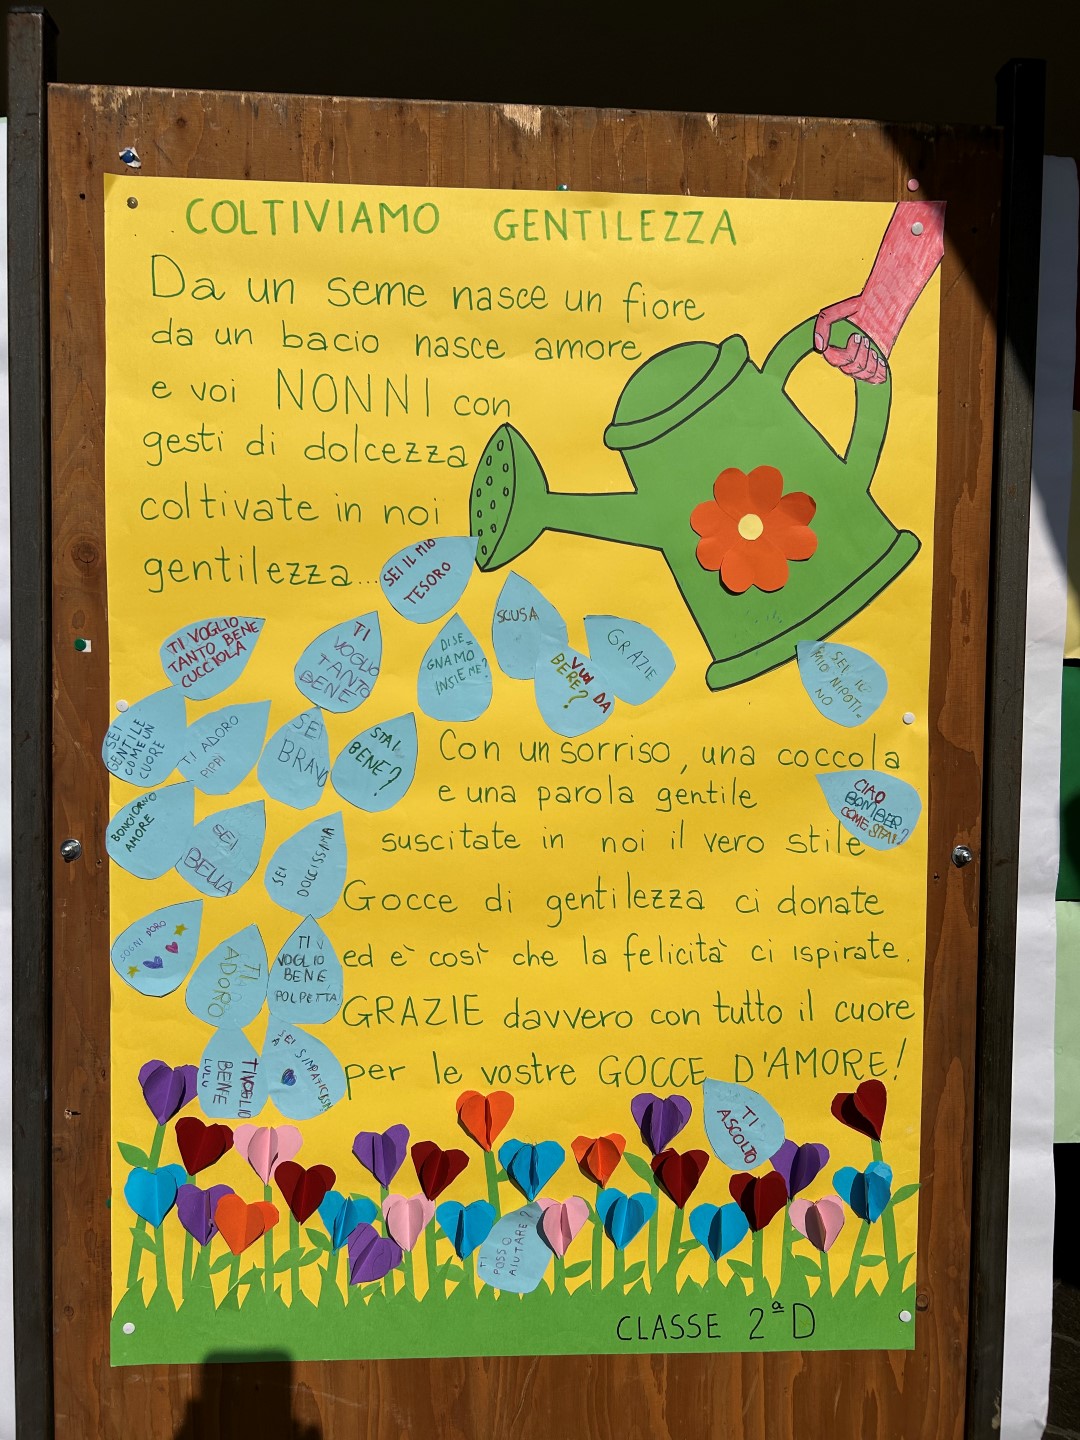 COLTIVIAMO GENTILEZZA
Da un seme nasce un fiore
da un bacio nasce amore
e voi NONNI con
gesti di dolcezza
coltivate in noi
gentilezza...
SEI IL MIO
TESORO
SCUSA
GRAZIE
VUOI DA
BERE?
DISE-
GNAMO
INSIEME?
TI
VOGLIO
TANTO
BENE
TI VOGLIO
TANTO BENE
CUCCIOLA
SEI IL
MIO NIPOTI-
NO
SEI
GENTILE
COME UN
CUORE
TI ADORO
PIPPI
SEI
BRAVO
STAI
BENE?
Con un sorriso, una coccola
e una parola gentile
suscitate in noi il vero stile
CIAO
BOMBER
COME STAI?
BONGIORNO
AMORE
SEI
BELLA
SEI
DOLCISSIMA
Gocce di gentilezza ci donate
ed è così che la felicità ci ispirate.
GRAZIE davvero con tutto il cuore
per le vostre GOCCE D'AMORE!
SOGNI D'ORO
TI
ADORO
TI
VOGLIO
BENE
POLPETTA
TI VOGLIO
BENE
LULU
SEI
TI
ASCOLTO
TI
POSSO
AIUTARE?
CLASSE 2ª D